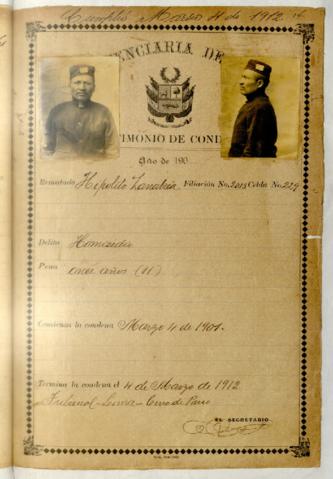 Cumplió Marzo 4 de 1912
ENCIARIA DE
TIMONIO DE COND
Año de 190
Rematado Hipolito Filiación No. 2013 Celda No. 229
Delito Homicidio
Pena once años (11)
Comienza la condena Marzo 4 de 1901.
Termina la condena el 4 de Marzo de 1912
Tribunal - - Cerro de Pasco
EL SECRETARIO